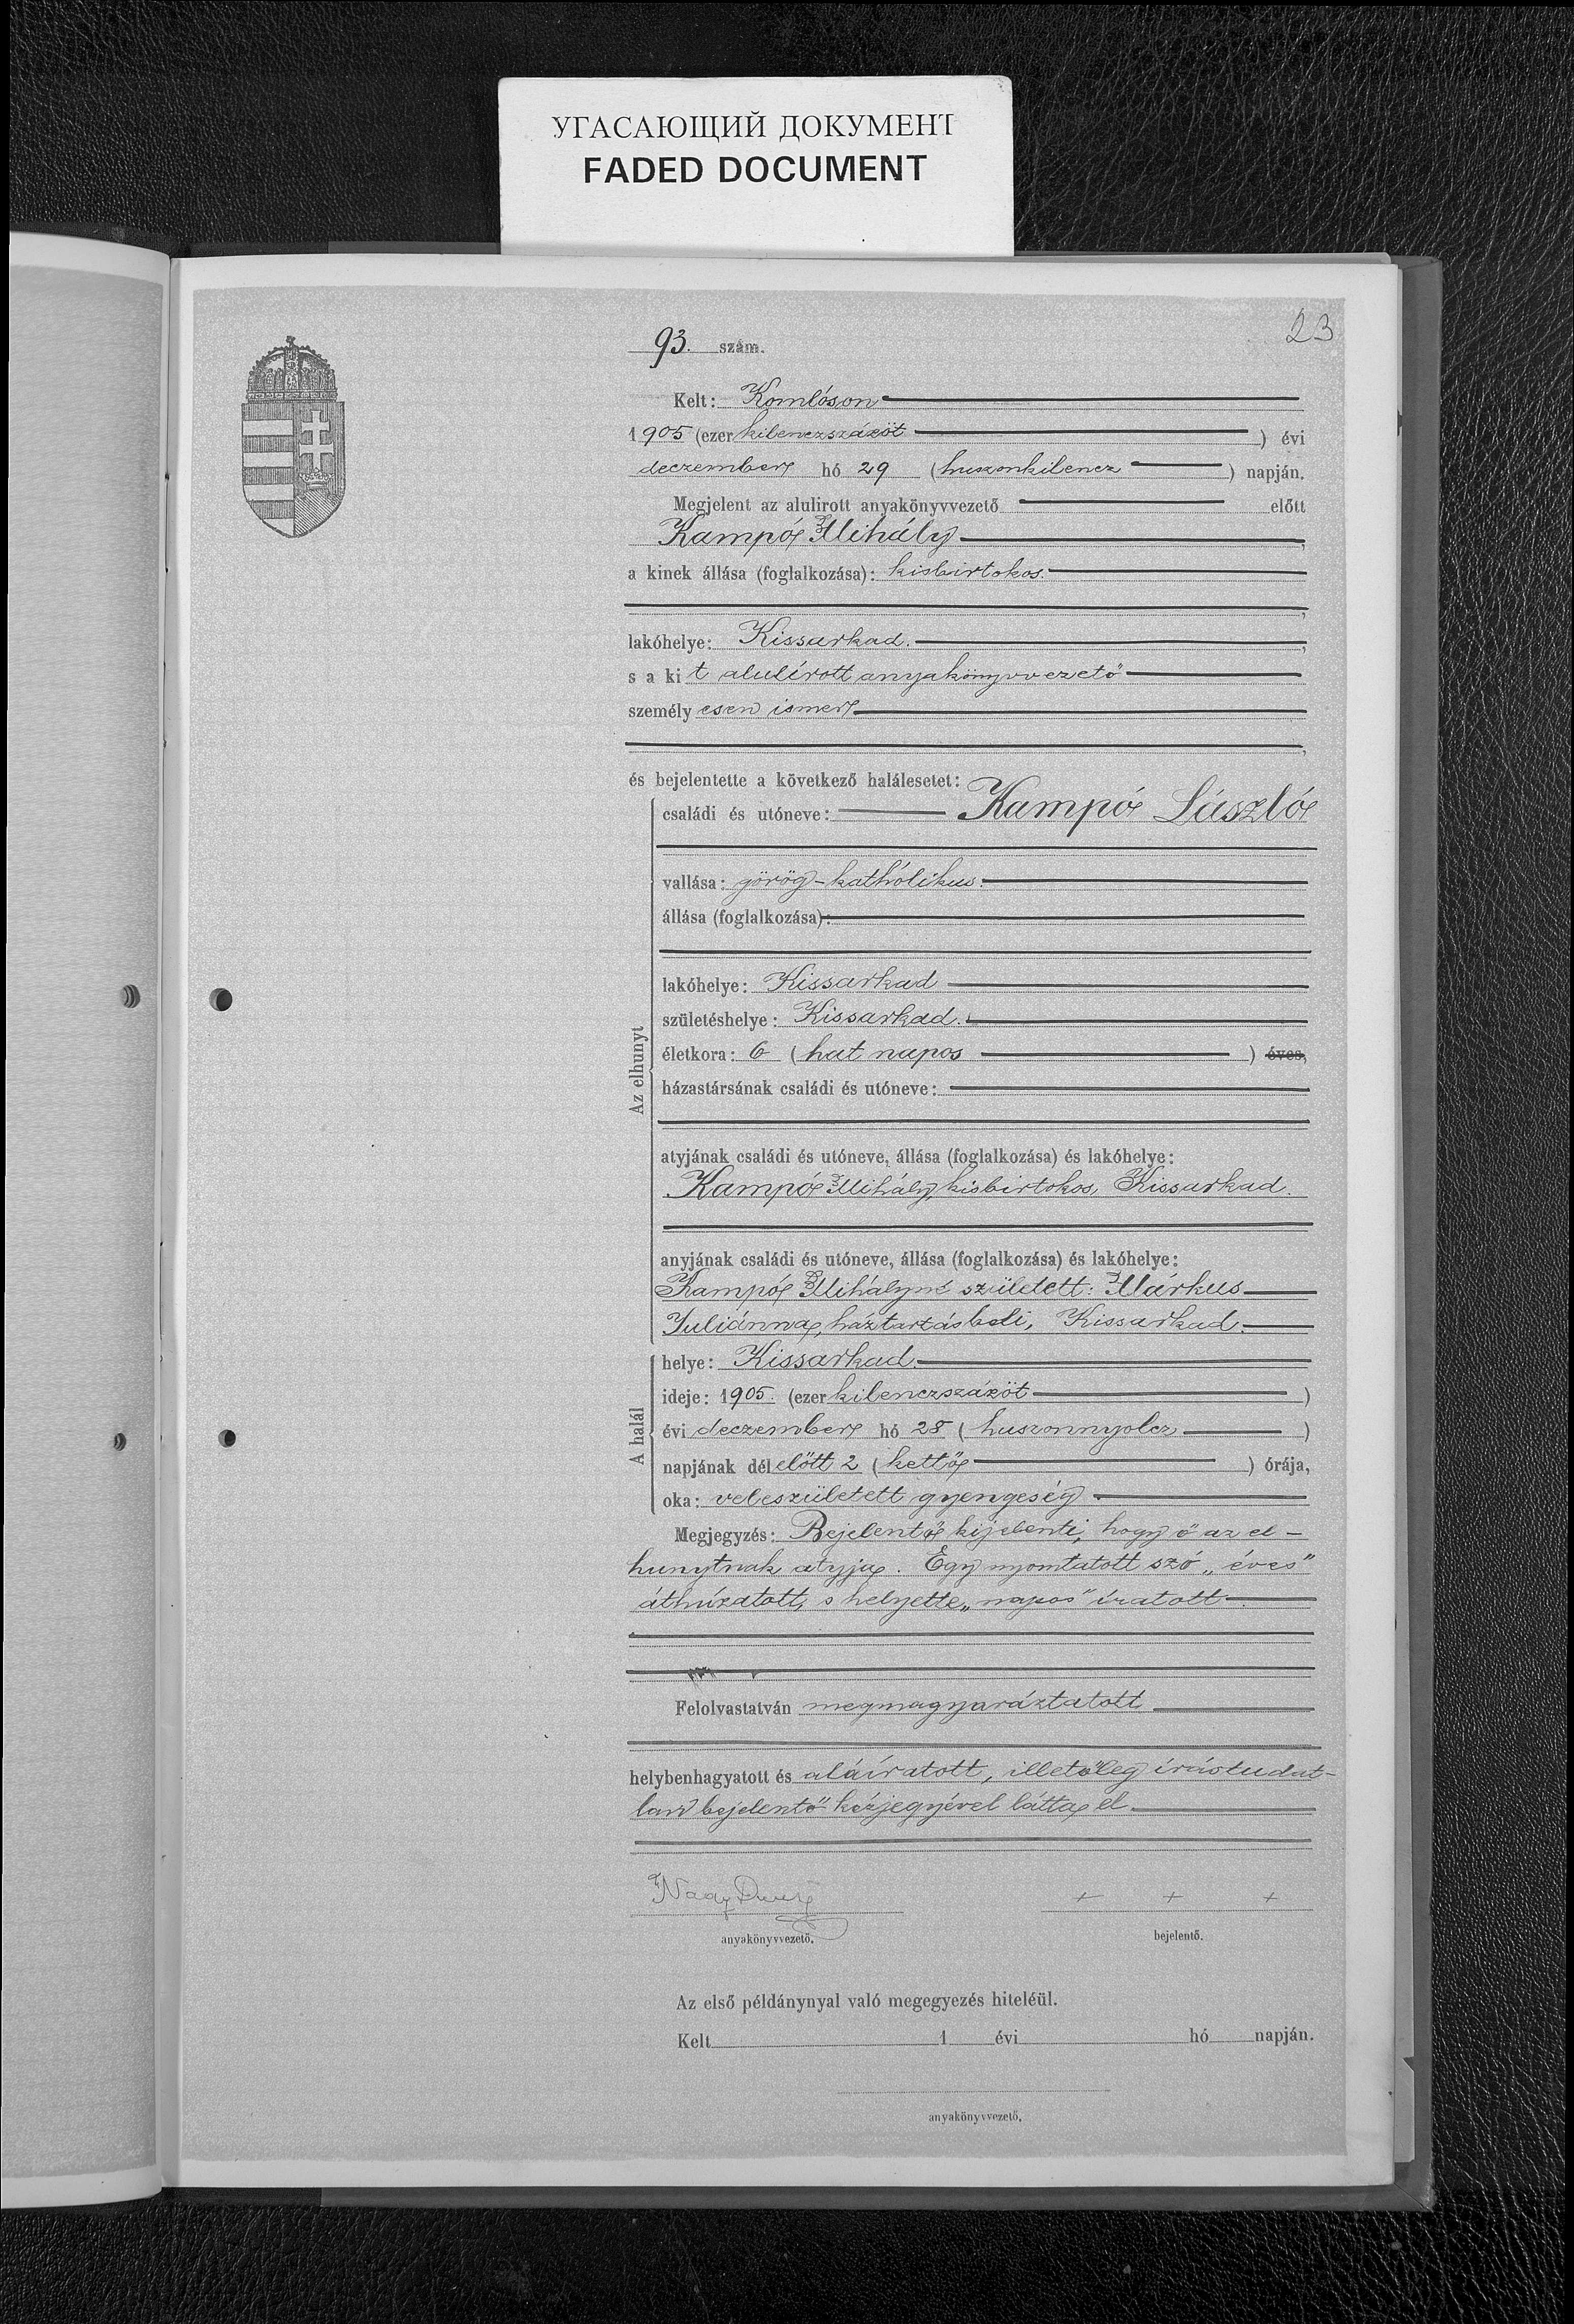 УГАСАЮЩИЙ ДОКУМЕНТ
FADED DOCUMENT
23
93. szám.
Kelt: Komlóson
1905 (ezer kilenczszázöt ) évi
deczember hó 29 (huszonkilencz ) napján.
Megjelent az alulirott anyakönyvvezető előtt
Kampó Mihály,
a kinek állása (foglalkozása): kisbirtokos.
,
lakóhelye: Kissarkad.,
s a kit alulírott anyakönyvvezető
személyesen ismer
,
és bejelentette a következő halálesetet:
Az elhunyt
családi és utóneve: Kampó László
vallása: görög-katholikus.
állása (foglalkozása):
lakóhelye: Kissarkad
születéshelye: Kissarkad.
életkora: 6 (hat napos ) éves,
házastársának családi és utóneve:
atyjának családi és utóneve, állása (foglalkozása) és lakóhelye:
Kampó Mihály, kisbirtokos, Kissarkad.
anyjának családi és utóneve, állása (foglalkozása) és lakóhelye:
Kampó Mihályné született: Márkus
Juliánna, háztartásbeli, Kissarkad.
A halál
helye: Kissarkad.
ideje: 1905. (ezer kilenczszázöt )
évi deczember hó 28 (huszonnyolcz )
napjának délelőtt 2 (kettő ) órája,
oka: veleszületett gyengeség.
Megjegyzés: Bejelentő kijelenti, hogy ő az el-
hunytnak atyja. Egy nyomtatott szó „éves"
áthúzatott, s helyette „napos" íratott.
Felolvastatván megmagyaráztatott
helybenhagyatott és aláíratott, illetőleg írástudat-
lan bejelentő kézjegyével látta el.
Nagy + + +
anyakönyvvezető. bejelentő.
Az első példánynyal való megegyezés hiteléül.
Kelt 1 évi hó napján.
anyakönyvvezető.